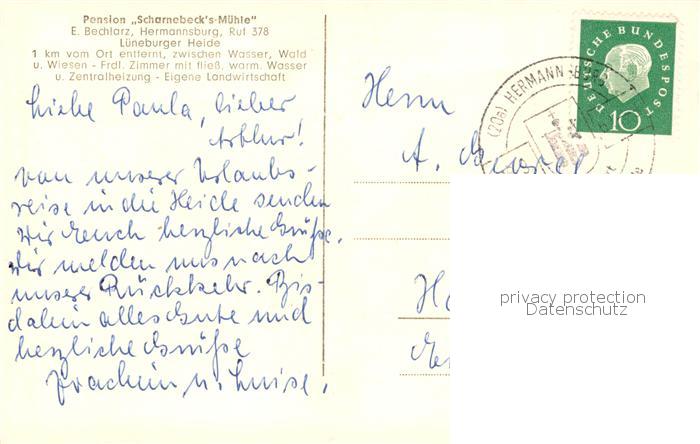 Pension „Scharnebeck's-Mühle"
E. Bechlarz, Hermannsburg, Ruf 378
Lüneburger Heide
1 km vom Ort entfernt, zwischen Wasser, Wald
u. Wiesen - Frdl. Zimmer mit fließ. warm. Wasser
u. Zentralheizung - Eigene Landwirtschaft
Liebe Paula, lieber
Arthur!
von unserer Urlaubs-
reise in die Heide senden
wir Euch herzliche Grüße.
Wir melden uns nach
unserer Rückkehr. Bis
dahin alles Gute und
herzliche Grüße
Joachim u. Luise.
Herrn
A.
DEUTSCHE BUNDESPOST
10
(20a) HERMANNSBURG
privacy protection
Datenschutz